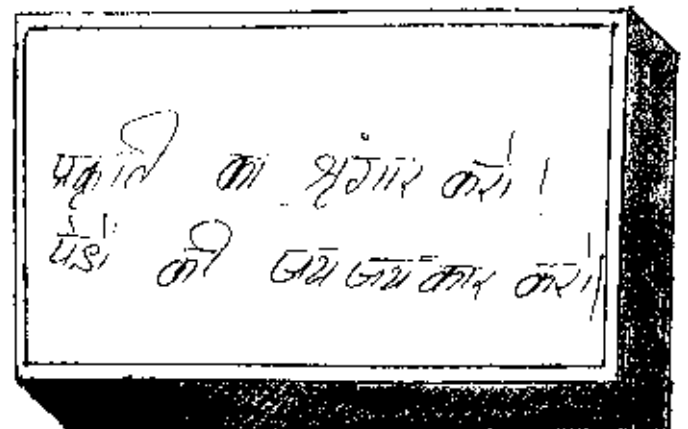 प्रकृति का श्रृंगार करो !
पेडों की जय जयकार करो।